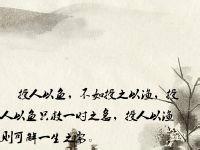 授人以鱼，不如授之以渔，授
人以鱼只救一时之急，授人以渔
则可解一生之需。